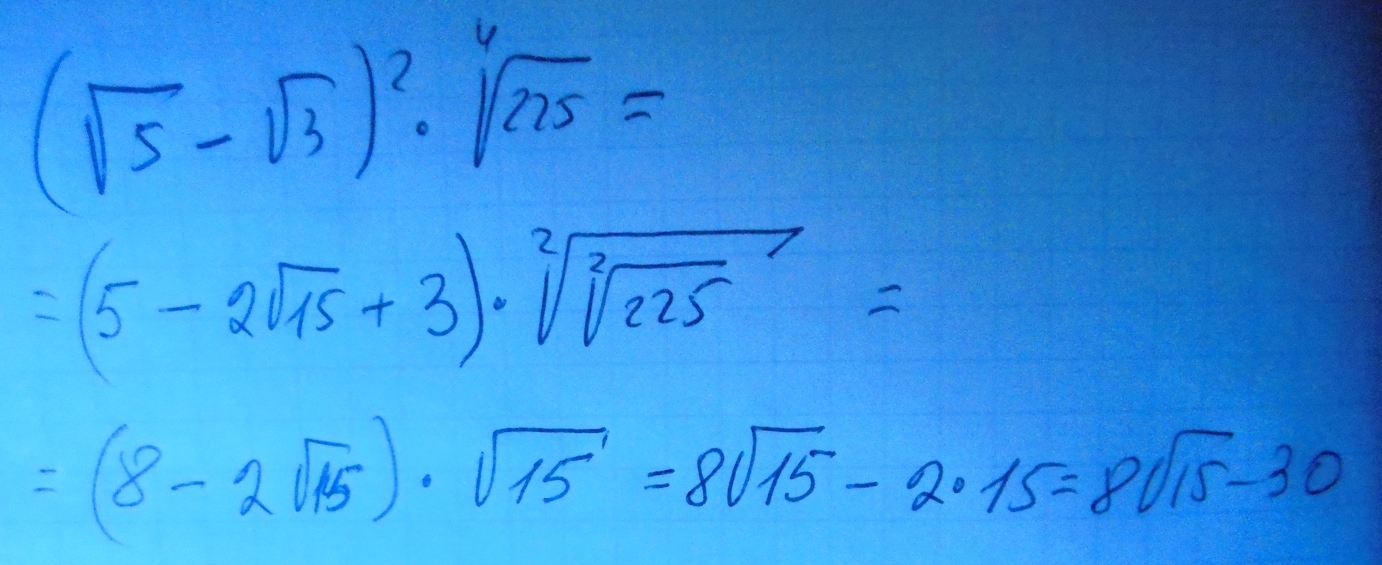 (√5 - √3)² · ⁴√225 =
= (5 - 2√15 + 3) · ²√(²√225) =
= (8 - 2√15) · √15 = 8√15 - 2·15 = 8√15 - 30